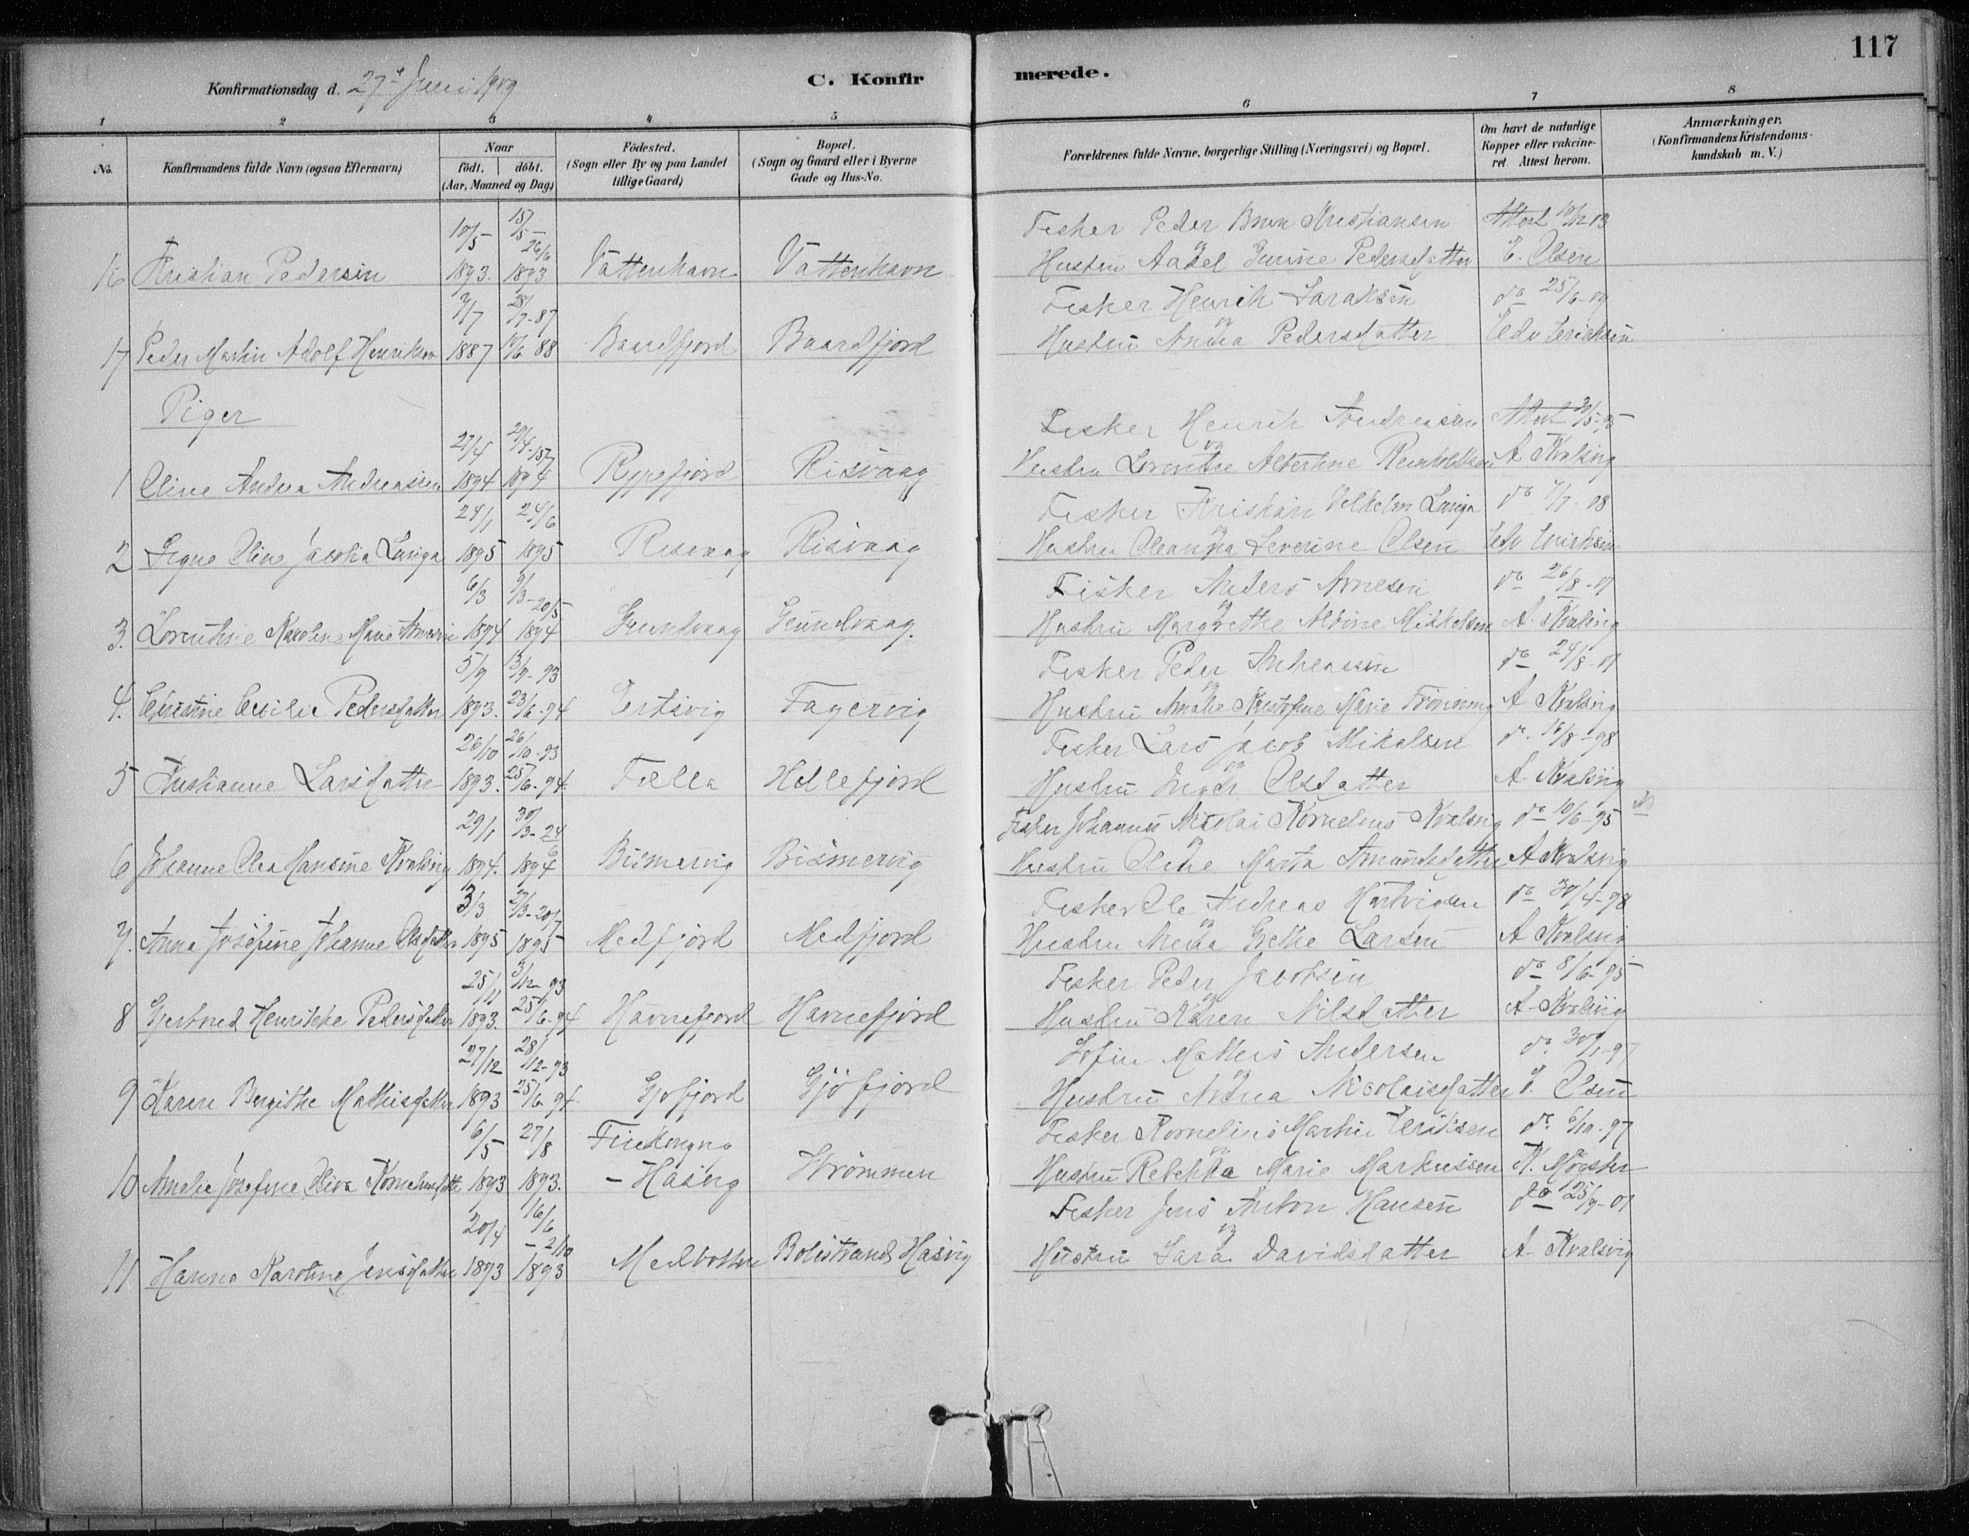 117
Konfirmationsdag d. 27de Juni 1909
C. Konfirmerede.
1 2 3 4 5 6 7 8
No.
Konfirmandens fulde Navn (ogsaa Efternavn)
Naar
født. døbt.
(Aar, Maaned og Dag)
Fødested.
(Sogn eller By og paa Landet
tillige Gaard)
Bopæl.
(Sogn og Gaard eller i Byerne
Gade og Hus-No.
Forældrenes fulde Navne, borgerlige Stilling (Næringsvei) og Bopæl.
Om havt de naturlige
Kopper eller vakcine-
ret. Attest herom.
Anmærkninger.
(Konfirmandens Kristendoms-
kundskab m. V.)
10/5 15/5 26/6 Fisker Peder Kristiansen Attest
16 Kristian Pedersen 1893. 1893 Vattenhavn Vattenhavn Hustru Pedersdatter E. Olsen
7/7 28/7-87 Fisker Henrik do 25/6-09
17 Peder Martin Adolf Henriksen 1887 10/6 88 Baardfjord Baardfjord Hustru Anna Pedersdatter Edv Eriksen
Piger
27/4 29/4 15/7 Fisker Henrik Andreasen Attest
1 Oline Andrea Andreassen 1894 1894 Rypefjord Risvaag Hustru Albertine A Kvalsvig
24/1 24/6 Fisker Kristian Vilhelm Langa do 7/7-08
2 Signe Oline Langa 1895 1895 Risvaag Risvaag Hustru Oleanna Severine Olsen Edv Eriksen
6/3 9/3-20/5 Fisker Anders Arnesen do 26/8-01
3. Karoline Marie 1894 1894 Gundvaag Gundvaag. Hustru Margrethe Aldine Mikkelsen A. Kvalsvig
5/9 13/9-93 Fisker Peder Andreassen do 24/8-01
4. Cecilie Pedersdatter 1893. 23/6-94 Ertsvig Fagervig Hustru Amalie Marie A Kvalsvig
26/10 26/10-93 Fisker Lars Jacob Mikalsen do 16/8-98
5 Kristianne Larsdatter 1893. 25/6-94. Fella Hellefjord Hustru Inger Olsdatter A. Kvalsvig
29/1 30/3-24/6 Fisker Johannes Nicolai Kornelius Kvalsvig do 10/6-95
6 Johanne Olea Hansine Kvalsvig 1894. 1894 Bismervig Bismervig Hustru Oline Marta Amundsdatter A Kvalsvig
3/3 20/7 Fisker Ole Andreas Hartvigsen do 30/4-98
7. Anna Josefine Johanne Olsdatter 1895 1895 Medfjord Medfjord Hustru Grethe Larsen A Kvalsvig
25/11 3/12-93 Fisker Peder Jacobsen do 8/6-95
8 Gjertrud Henrikke Pedersdatter 1893. 25/6-94 Havnefjord Havnefjord Hustru Karen Nilsdatter A. Kvalsvig
27/12 28/12-93 Lofin Mathis Andersen do 30/1-97
9 Karen Bergithe Mathisdatter 1893 25/6-94. Gjøfjord Gjøfjord Hustru Andrea Nicolaisdatter E. Olsen
6/5 27/8 Finkongna Fisker Kornelius Martin Eriksen do 6/10-97
10 Amalie Josefine 1893 1893. - Hasvig Strømmen Hustru Rebekka Marie Markussen K. Mørster
20/4 16/6 - 2/10 Fisker Jens Anton Hansen do 25/9-01
11 Hanna Karoline Jensdatter 1893 1893 Medbotten Bolestrand Hasvig Hustru Sara Davidsdatter A. Kvalsvig